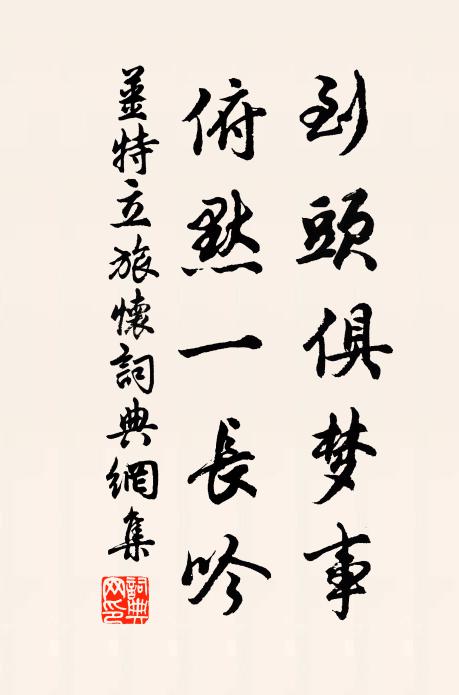 到頭俱梦事
俯默一長吟
姜特立旅懷詞典網集
詞典網印